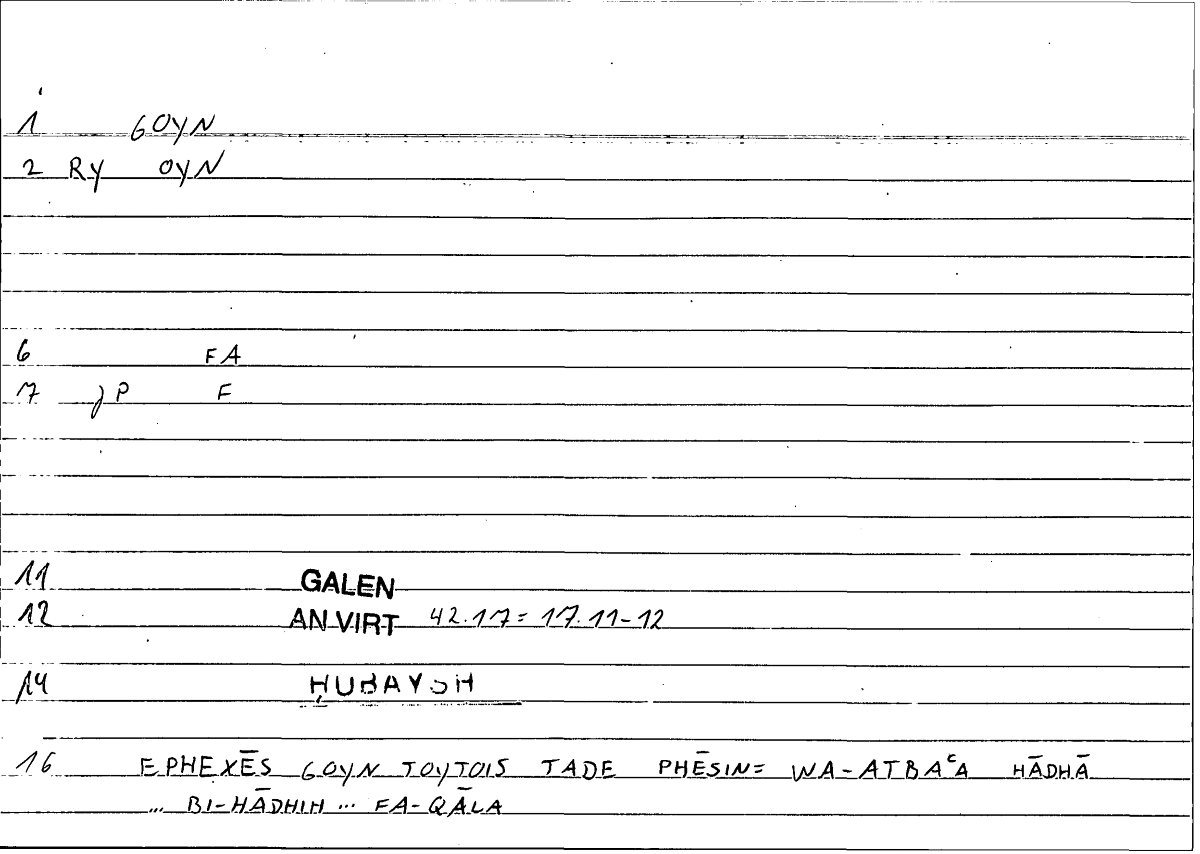 1 GOYN
2 RY OYN
6 FA
7 P F
11 GALEN
12 AN VIRT 42.17 = 17.11-12
14 ḤUBAYSH
16 EPHEXĒS GOYN TOYTOIS TADE PHĒSIN= WA-ATBAᶜA HĀDHĀ
... BI-HĀDHIH ... FA-QĀLA